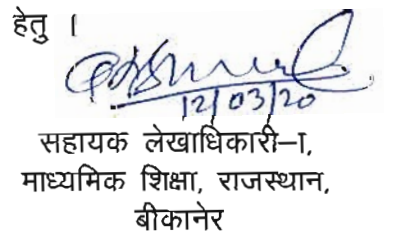 हेतु ।
12/03/20
सहायक लेखाधिकारी–I,
माध्यमिक शिक्षा, राजस्थान,
बीकानेर